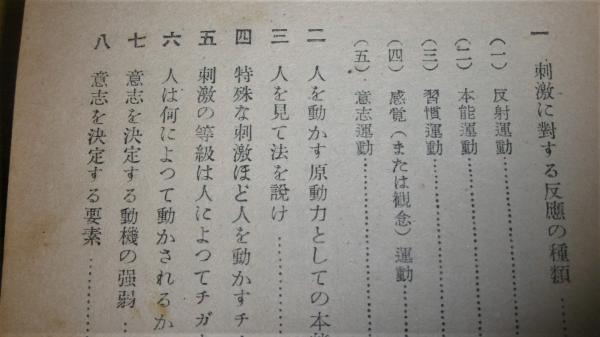 一 刺激に對する反應の種類………
(一) 反射運動………
(二) 本能運動………
(三) 習慣運動………
(四) 感覚(または観念)運動………
(五) 意志運動………
二 人を動かす原動力としての本
三 人を見て法を説け………
四 特殊な刺激ほど人を動かすチ
五 刺激の等級は人によつてチガ
六 人は何によつて動かされるか
七 意志を決定する動機の强弱………
八 意志を決定する要素………